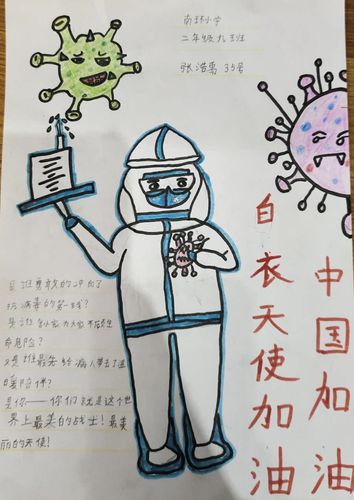 南环小学
二年级九班
张浩 35号
白衣天使加油
中国加油
是谁勇敢的冲在了
抗病毒的第一线?
命危险?
又是谁最先给病人带去了温
暖陪伴?
是你——你们就是这个世
界上最美的战士!最美
丽的天使!